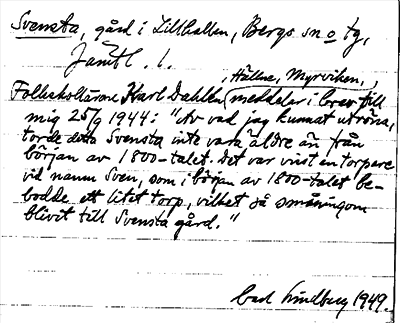 Svensta, gård i Lillhallen, Bergs sn o tg,
Jämtl. l.
, Hällne, Myrviken, ,
Folkskollärare Karl Dahlén meddelar i brev till
mig 25/9 1944: "Av vad jag kunnat utröna,
torde detta Svensta inte vara äldre än från
början av 1800-talet. Det var visst en torpare
vid namn Sven, som i början av 1800-talet be-
bodde ett litet torp, vilket så småningom
blivit till Svensta gård."
Carl Lindberg 1949.